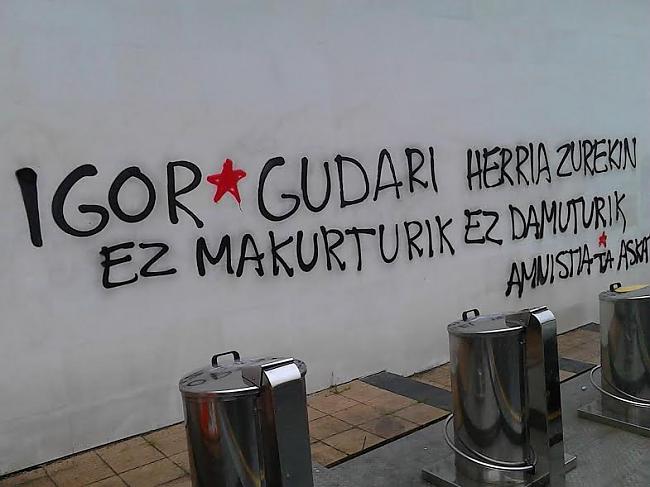 IGOR★GUDARI HERRIA ZUREKIN
EZ MAKURTURIK EZ DAMUTURIK,
AMNISTIA★TA ASKAT